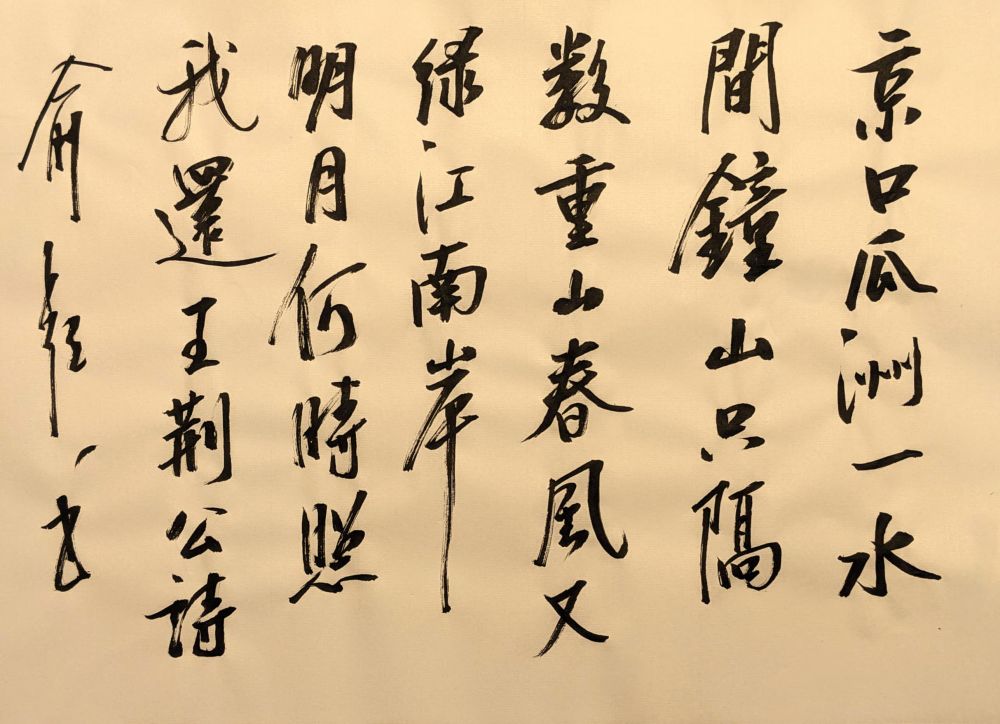 京口瓜洲一水
間鐘山只隔
数重山春風又
绿江南岸
明月何時照
我還王荆公詩
俞書